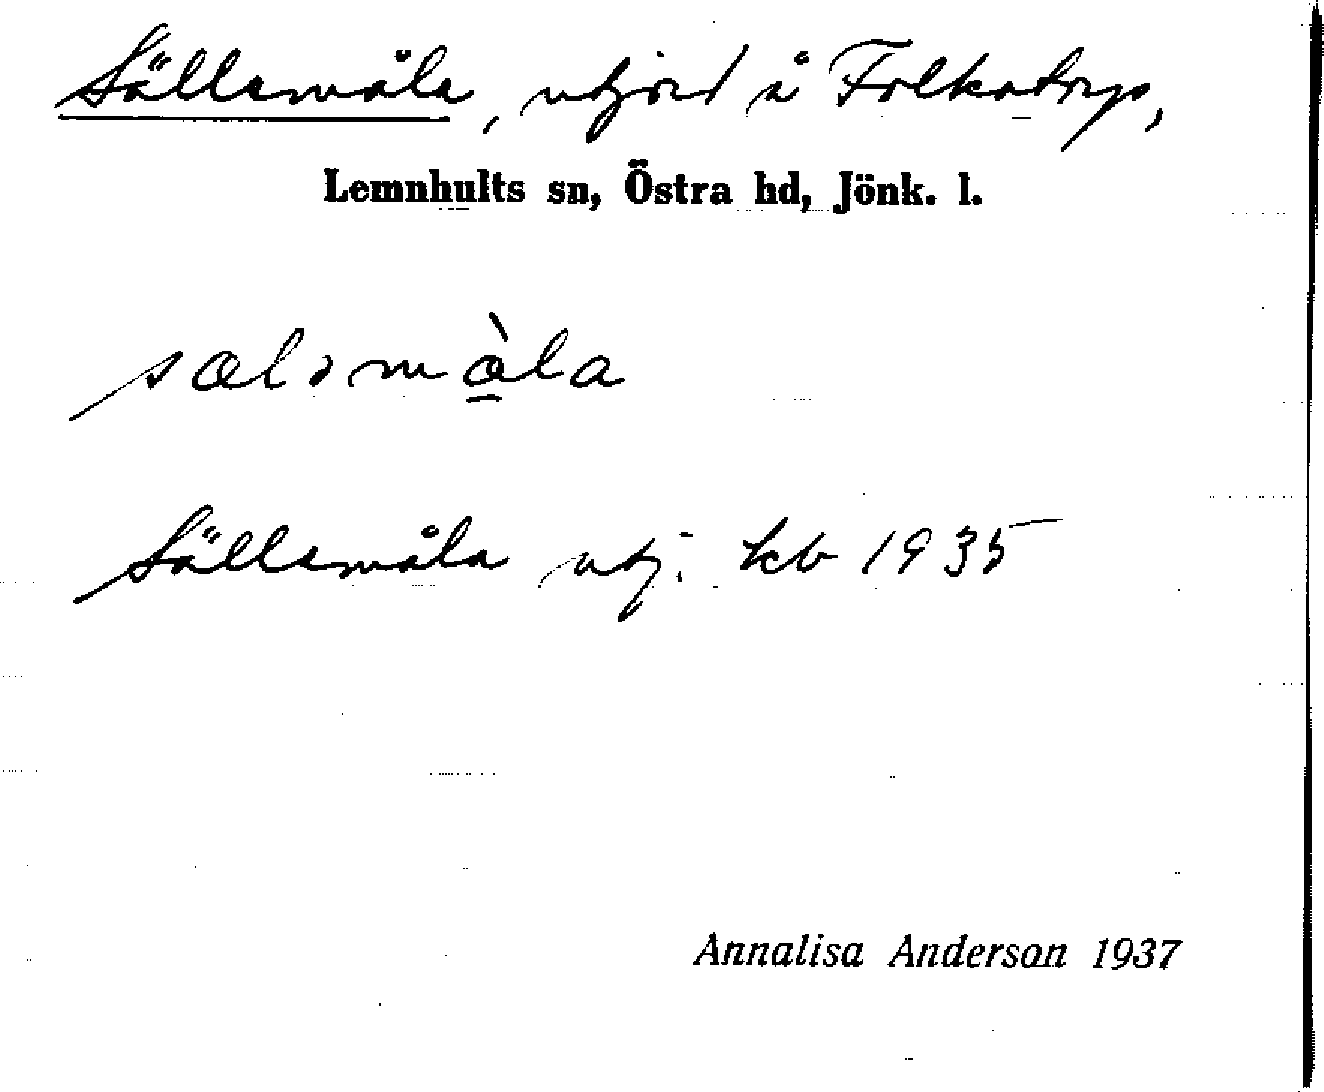 Sällsmåla, utjord å Folkatorp,
Lemnhults sn, Östra hd, Jönk. l.
sælsmàla
Sällsmåla utj. kb 1935
Annalisa Anderson 1937